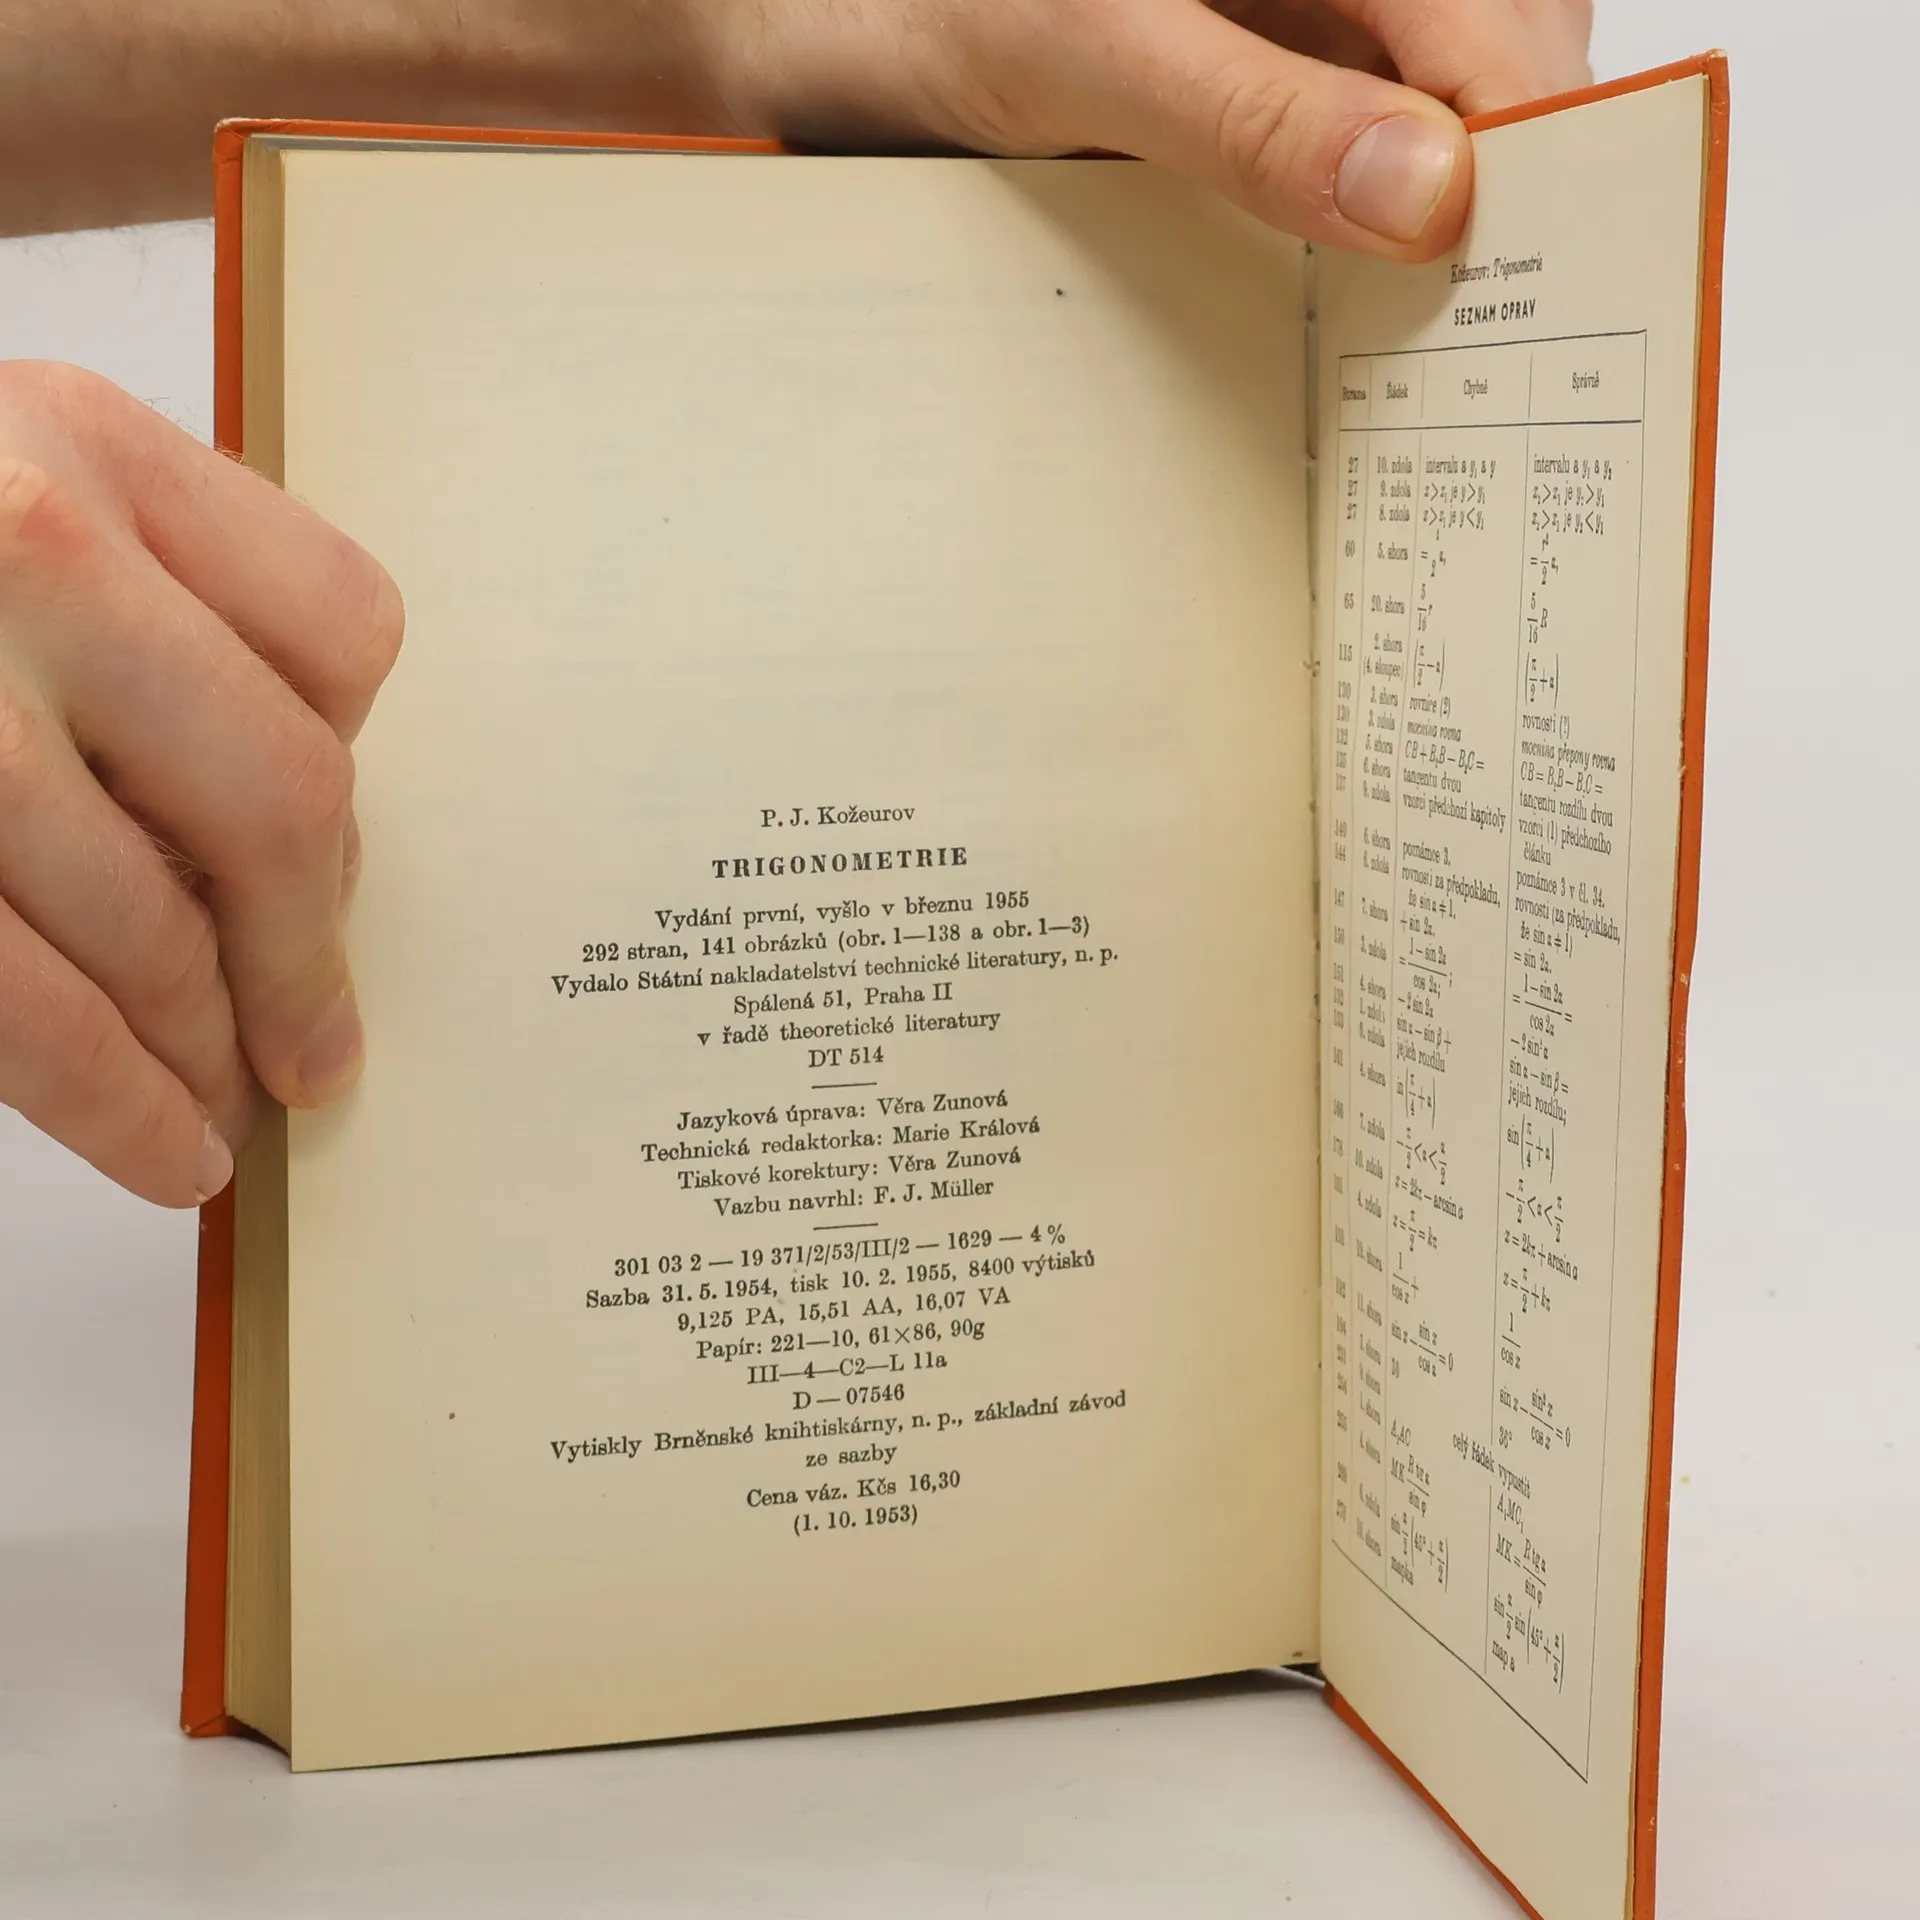 P. J. Kožeurov
TRIGONOMETRIE
Vydání první, vyšlo v březnu 1955
292 stran, 141 obrázků (obr. 1—138 a obr. 1—3)
Vydalo Státní nakladatelství technické literatury, n. p.
Spálená 51, Praha II
v řadě theoretické literatury
DT 514
Jazyková úprava: Věra Zunová
Technická redaktorka: Marie Králová
Tiskové korektury: Věra Zunová
Vazbu navrhl: F. J. Müller
301 03 2 — 19 371/2/53/III/2 — 1629 — 4 %
Sazba 31. 5. 1954, tisk 10. 2. 1955, 8400 výtisků
9,125 PA, 15,51 AA, 16,07 VA
Papír: 221—10, 61×86, 90g
III—4—C2—L 11a
D — 07546
Vytiskly Brněnské knihtiskárny, n. p., základní závod
ze sazby
Cena váz. Kčs 16,30
(1. 10. 1953)
Kožeurov: Trigonometrie
SEZNAM OPRAV
Strana Řádek Chybně Správně
27 10. zdola intervalu a y₁ a y intervalu a y₁ a y₂
27 9. zdola
27 8. zdola
60 5. shora
65 20. shora 5/16 r 5/16 R
115 2. shora (4. sloupec) (π/2 − α) (π/2 + α)
130 3. shora rovnice (2) rovnosti
130 3. zdola mocnina rovna mocnina přepony rovna
132 5. shora
135 6. shora tangentu dvou tangentu rozdílu dvou
137 9. zdola vzorci předchozí kapitoly vzorci (1) předchozího článku
140 6. shora poznámce 3. poznámce 3 v čl. 34.
144 rovnosti za předpokladu, že sin α ≠ 1. rovnosti (za předpokladu, že sin α ≠ 1)
147 7. shora + sin 2α. = sin 2α.
150 3. zdola = 1 − sin 2α / cos 2α; = 1 − sin 2α / cos 2α =
4. shora − 2 sin 2α − 2 sin² α
1. zdola sin α − sin β + sin α − sin β =
jejich rozdílu jejich rozdílu;
4. shora in (π/4 + α) sin (π/4 + α)
7. zdola
10. zdola
4. zdola
celý řádek vypustit
A₁MC₁
mapka map a